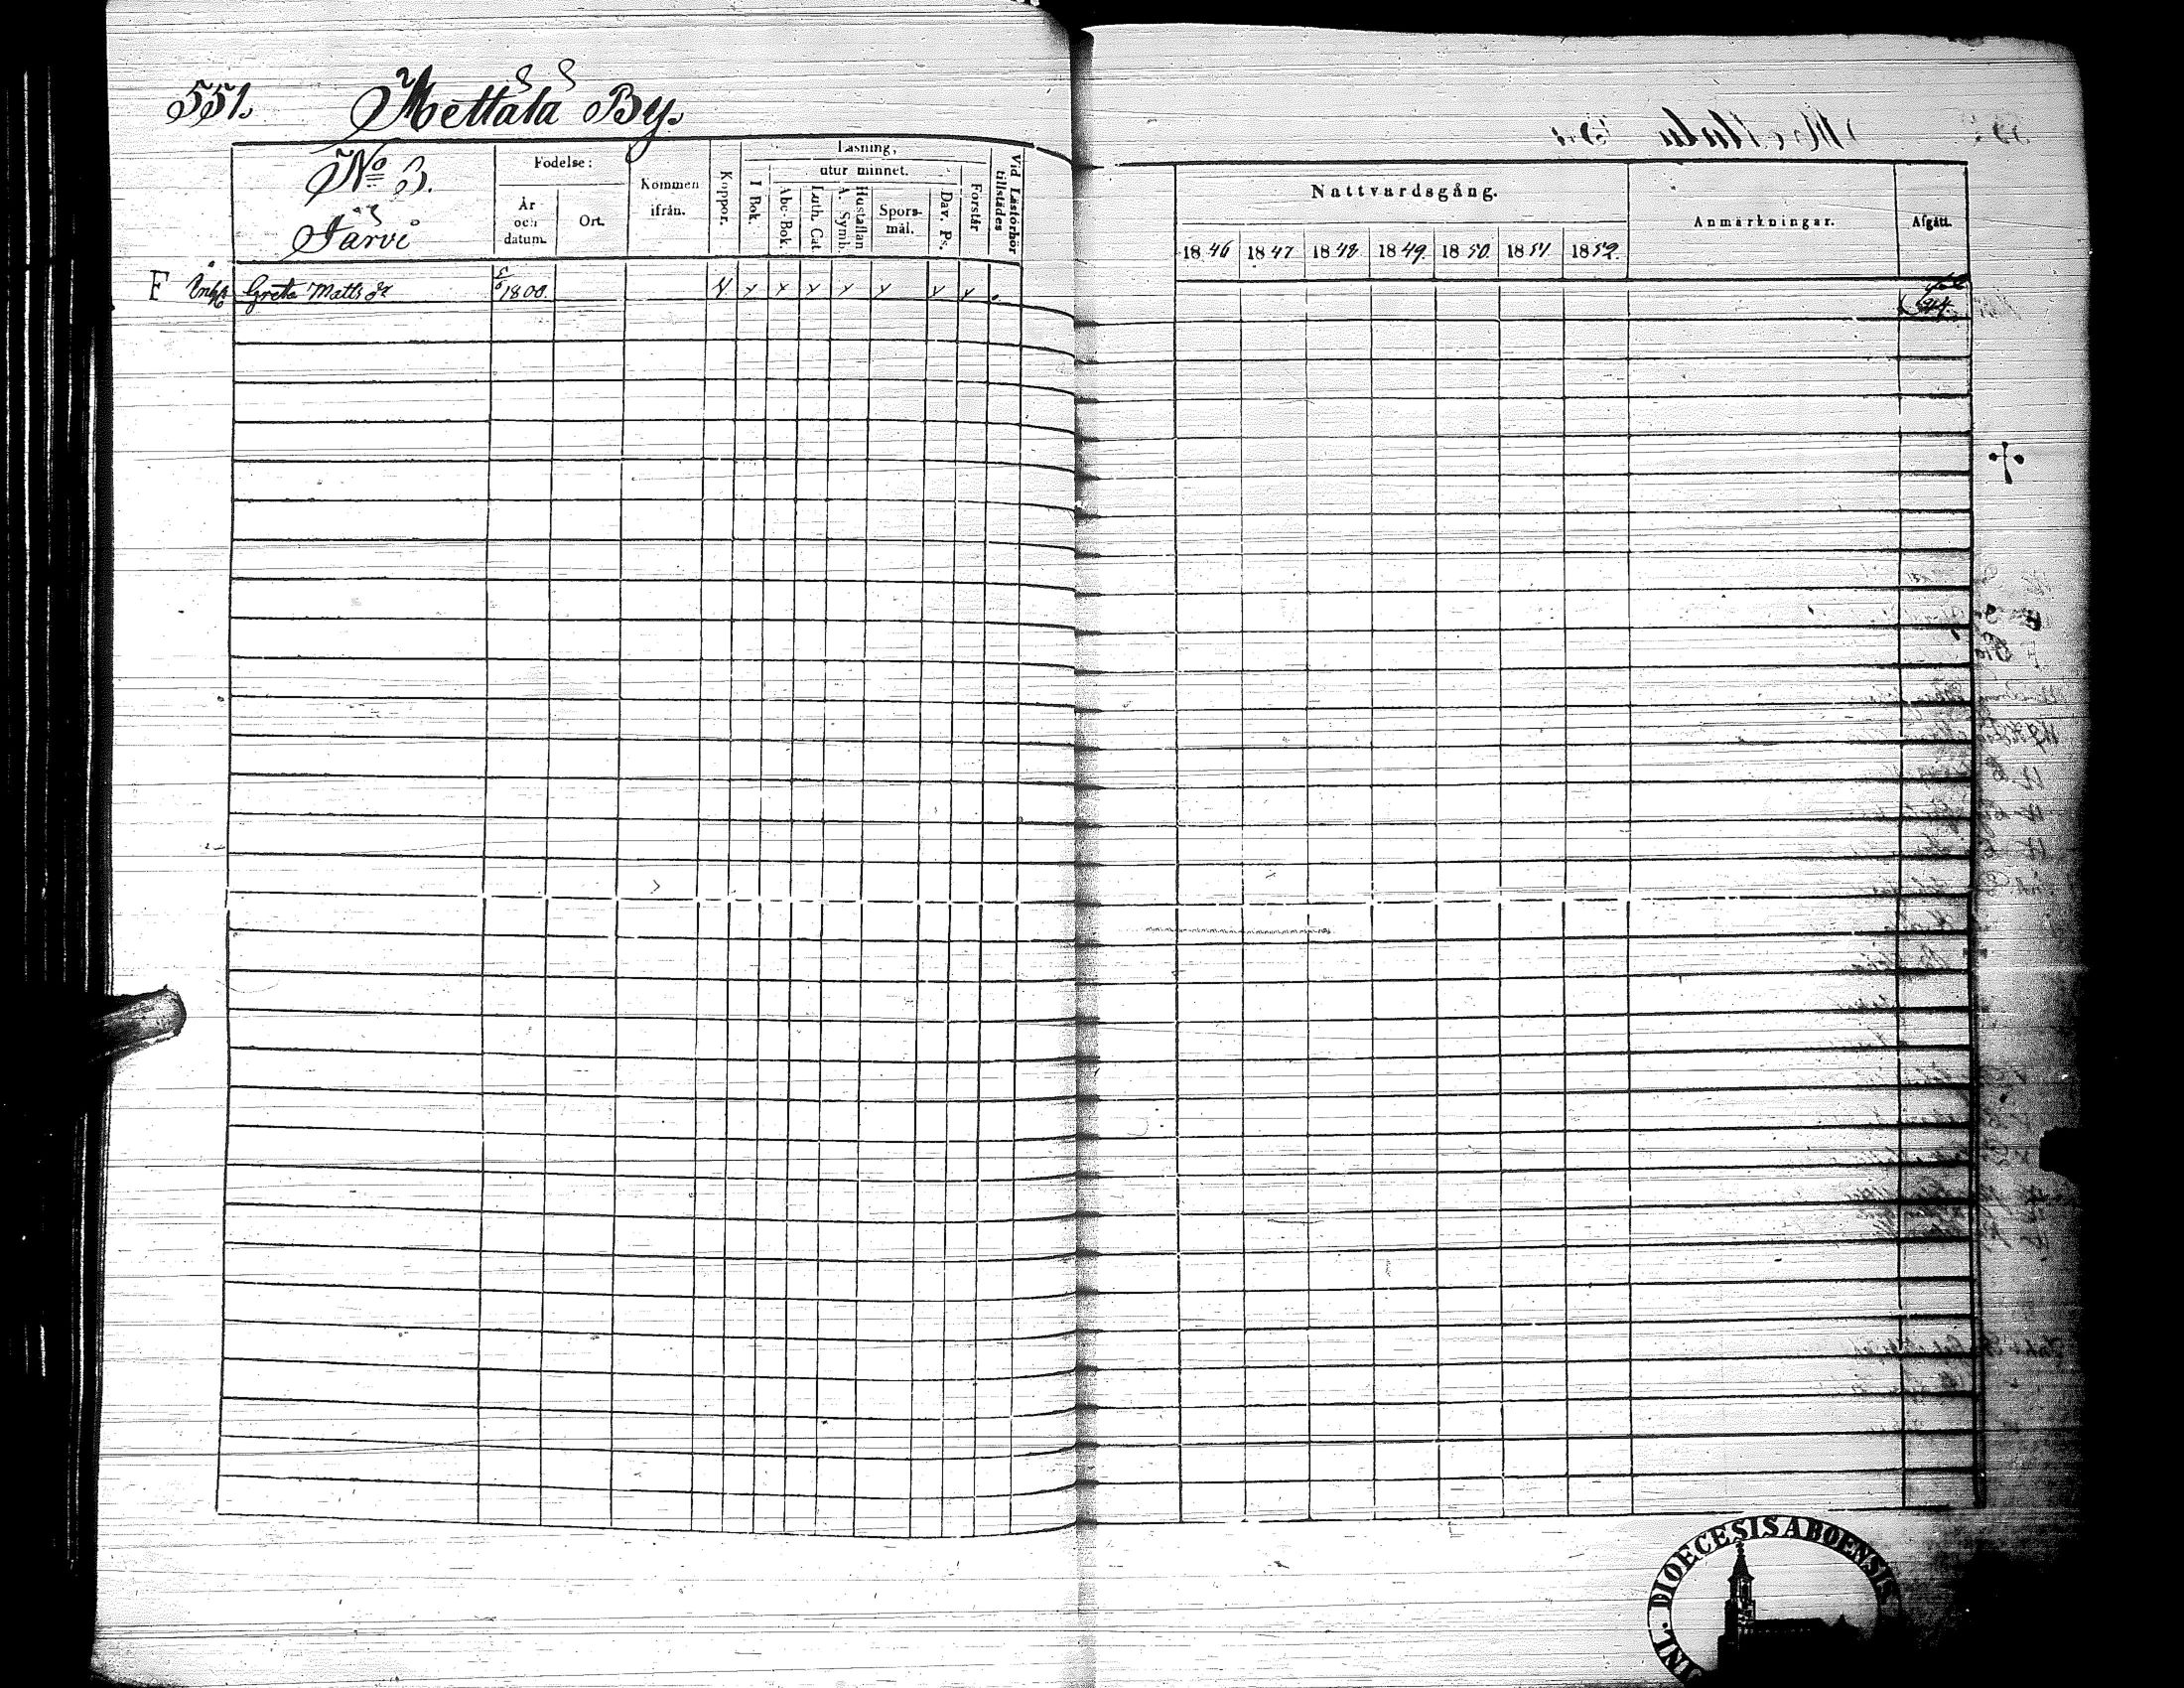 551. Mettälä By.
No 3.
Järvi
Födelse:
År och datum.
Ort.
Kommen ifrån.
Koppor.
Läsning,
I Bok.
utur minnet.
Abc-Bok.
Luth. Cat.
Hustaflan A. Symb.
Spörsmål.
Dav. Ps.
Förstår
Vid Läsförhör tillstädes
Nattvardsgång.
1846 1847 1848 1849 1850 1851 1852
Anmärkningar.
Afgått.
F Enk. Greta Matts dr 1800.
DIOECESIS ABOENSIS